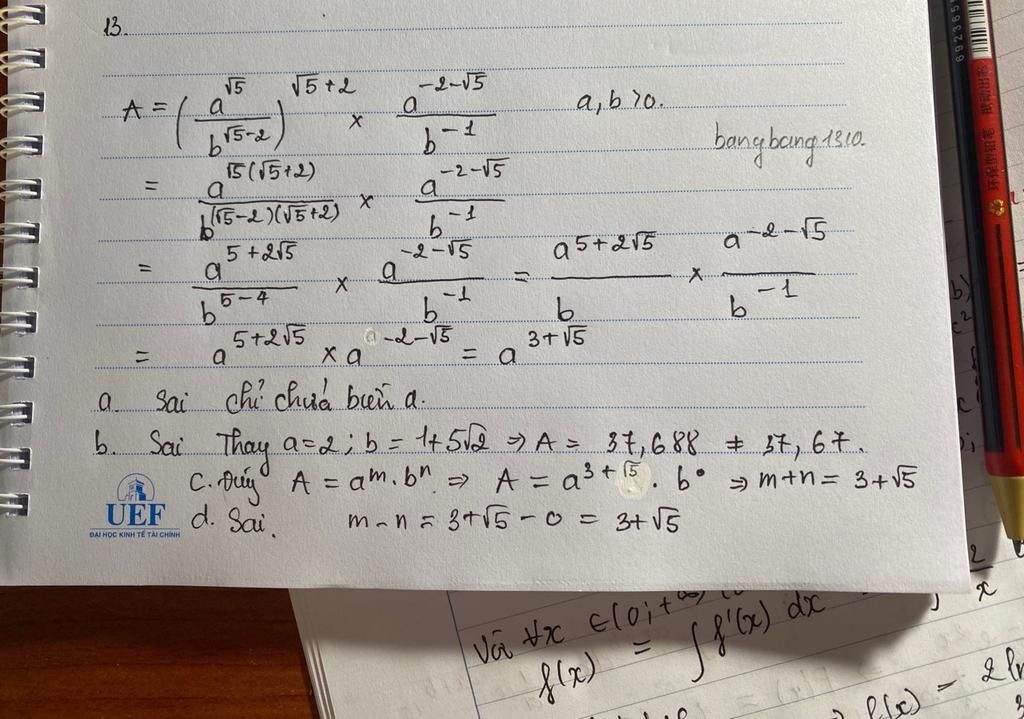 13.
A = (a^√5 / b^(√5-2))^(√5+2) × a^(-2-√5) / b^(-1)   a, b > 0.
bangbang1310
= a^(√5(√5+2)) / b^((√5-2)(√5+2)) × a^(-2-√5) / b^(-1)
= a^(5+2√5) / b^(5-4) × a^(-2-√5) / b^(-1) = a^(5+2√5) / b × a^(-2-√5) / b^(-1)
= a^(5+2√5) × a^(-2-√5) = a^(3+√5)
a. Sai chỉ chứa biến a.
b. Sai Thay a=2; b=1+5√2 ⇒ A = 37,688 ≠ 37,67.
c. Đúng A = a^m . b^n ⇒ A = a^(3+√5) . b^0 ⇒ m+n = 3+√5
d. Sai. m-n = 3+√5-0 = 3+√5
UEF
ĐẠI HỌC KINH TẾ TÀI CHÍNH
Với ∀x ∈ (0;+∞)
f(x) = ∫f'(x) dx
692365